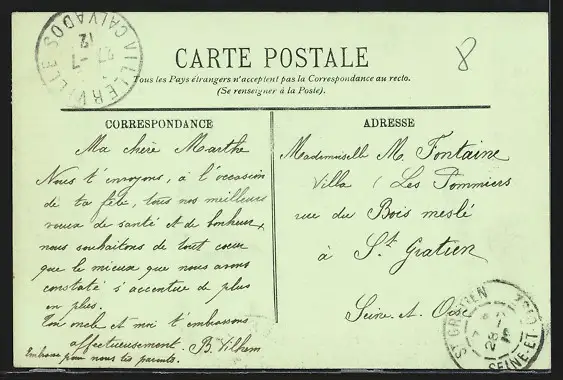 VILLERVILLE CALVADOS
27
-7
12
CARTE POSTALE
Tous les Pays étrangers n'acceptent pas la Correspondance au recto.
(Se renseigner à la Poste).
CORRESPONDANCE
Ma chère Marthe
Nous t'envoyons, à l'occasion
de ta fête, tous nos meilleurs
vœux de santé et de bonheur,
nous souhaitons de tout cœur
que le mieux que nous avons
constaté s'accentue de plus
en plus.
Ton oncle et moi t'embrassons
affectueusement. B. Vilhem
Embrasse pour nous tes parents.
ADRESSE
Mademoiselle M. Fontaine
Villa (Les Pommiers
rue du Bois meslé
à St Gratien
Seine-et-Oise
ST GRATIEN
SEINE-ET-OISE
28